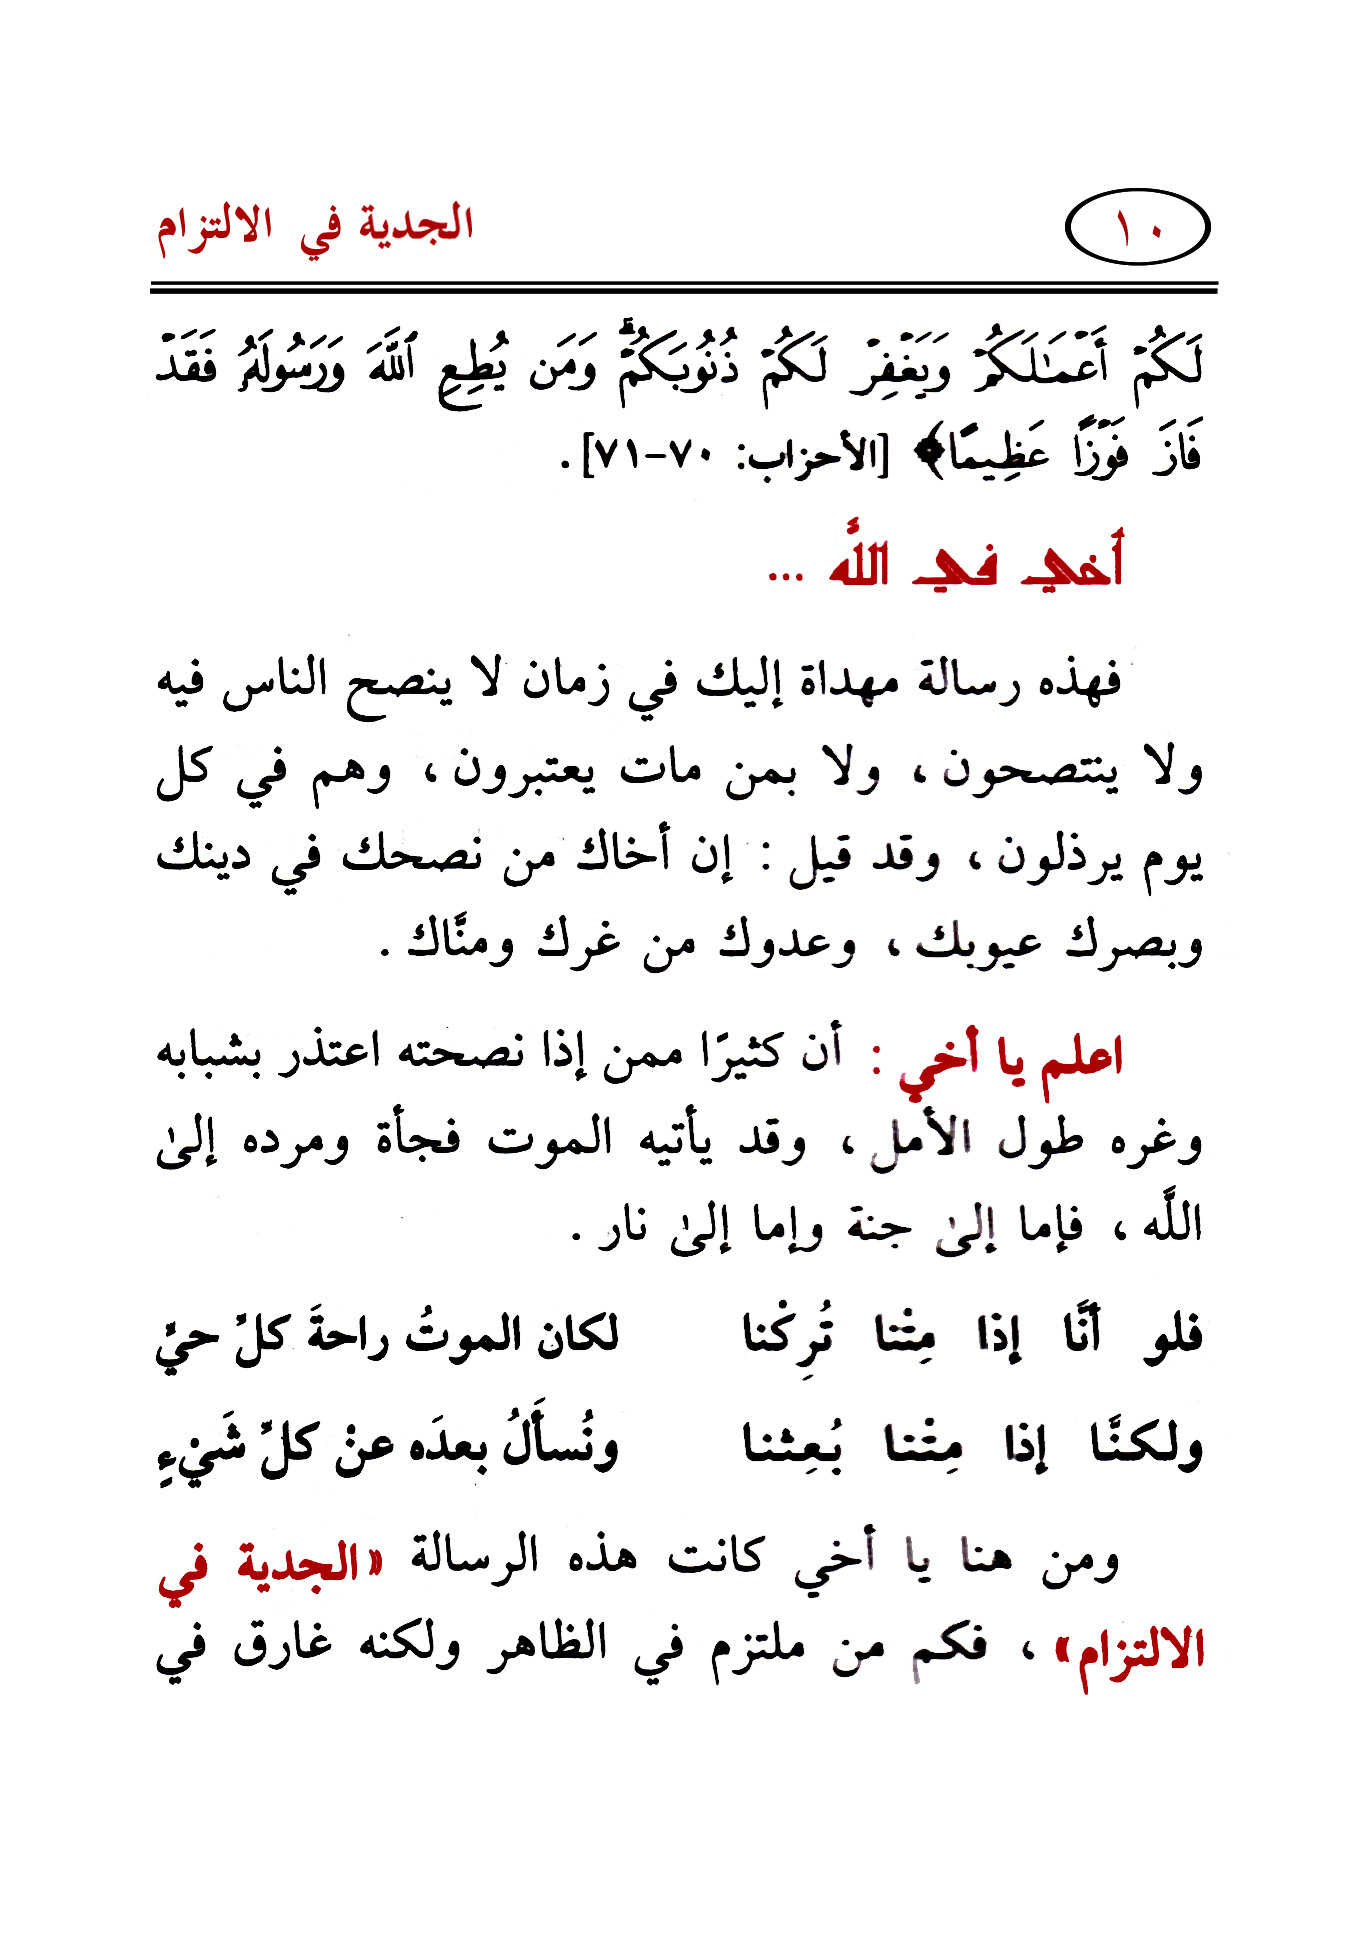 ١٠
الجدية في الالتزام
لَكُمْ أَعْمَـٰلَكُمْ وَيَغْفِرْ لَكُمْ ذُنُوبَكُمْ ۗ وَمَن يُطِعِ ٱللَّهَ وَرَسُولَهُۥ فَقَدْ
فَازَ فَوْزًا عَظِيمًا﴾ [الأحزاب: ٧٠-٧١].
أخي في اللَّه ...
فهذه رسالة مهداة إليك في زمان لا ينصح الناس فيه
ولا ينتصحون، ولا بمن مات يعتبرون، وهم في كل
يوم يرذلون، وقد قيل: إن أخاك من نصحك في دينك
وبصرك عيوبك، وعدوك من غرك ومنَّاك.
اعلم يا أخي: أن كثيرًا ممن إذا نصحته اعتذر بشبابه
وغره طول الأمل، وقد يأتيه الموت فجأة ومرده إلىٰ
اللَّه، فإما إلىٰ جنة وإما إلىٰ نار.
فلو أنَّا إذا مِتْنا تُرِكْنا لكان الموتُ راحةَ كلِّ حيٍّ
ولكنَّا إذا مِتْنا بُعِثنا ونُسأَلُ بعدَه عنْ كلِّ شَيْءٍ
ومن هنا يا أخي كانت هذه الرسالة «الجدية في
الالتزام»، فكم من ملتزم في الظاهر ولكنه غارق في